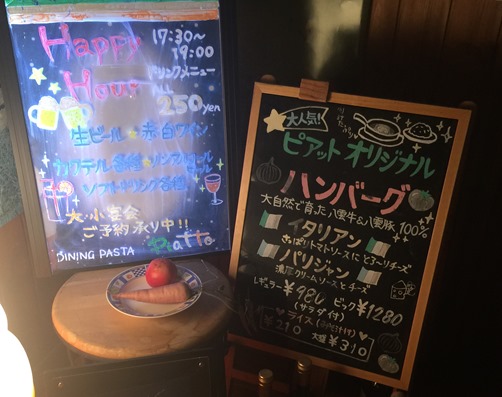 Happy
Hour
17:30〜
19:00
ドリンクメニュー
ALL
250yen
生ビール★赤白ワイン
カクテル各種★ノンアルコール
ソフトドリンク各種
大・小宴会
ご予約承り中!!
DINING PASTA Piatto
大人気!!
ピアット オリジナル
ハンバーグ
大自然で育った八雲牛&八雲豚100%
イタリアン
さっぱりトマトソースにとろ〜りチーズ
パリジャン
濃厚クリームソースとチーズ
レギュラー ¥980 ビッグ ¥1280
(サラダ付)
♥ライス
¥210 大盛¥310